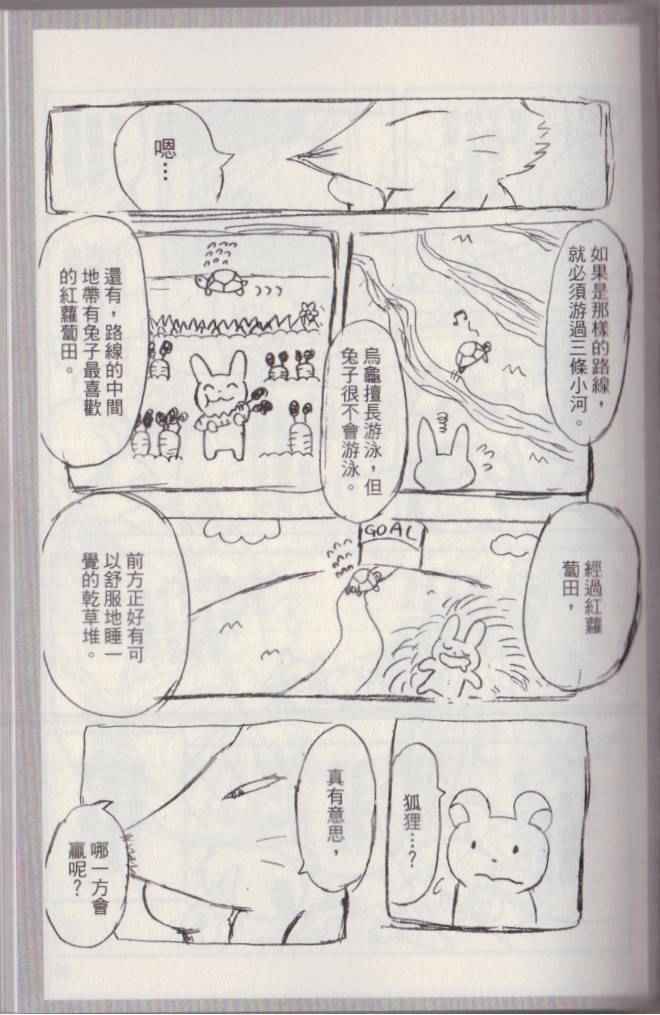 嗯…
如果是那樣的路線，
就必須游過三條小河。
烏龜擅長游泳，但
兔子很不會游泳。
還有，路線的中間
地帶有兔子最喜歡
的紅蘿蔔田。
經過紅蘿
蔔田，
GOAL
前方正好有可
以舒服地睡一
覺的乾草堆。
狐狸…？
真有意思，
哪一方會
贏呢？